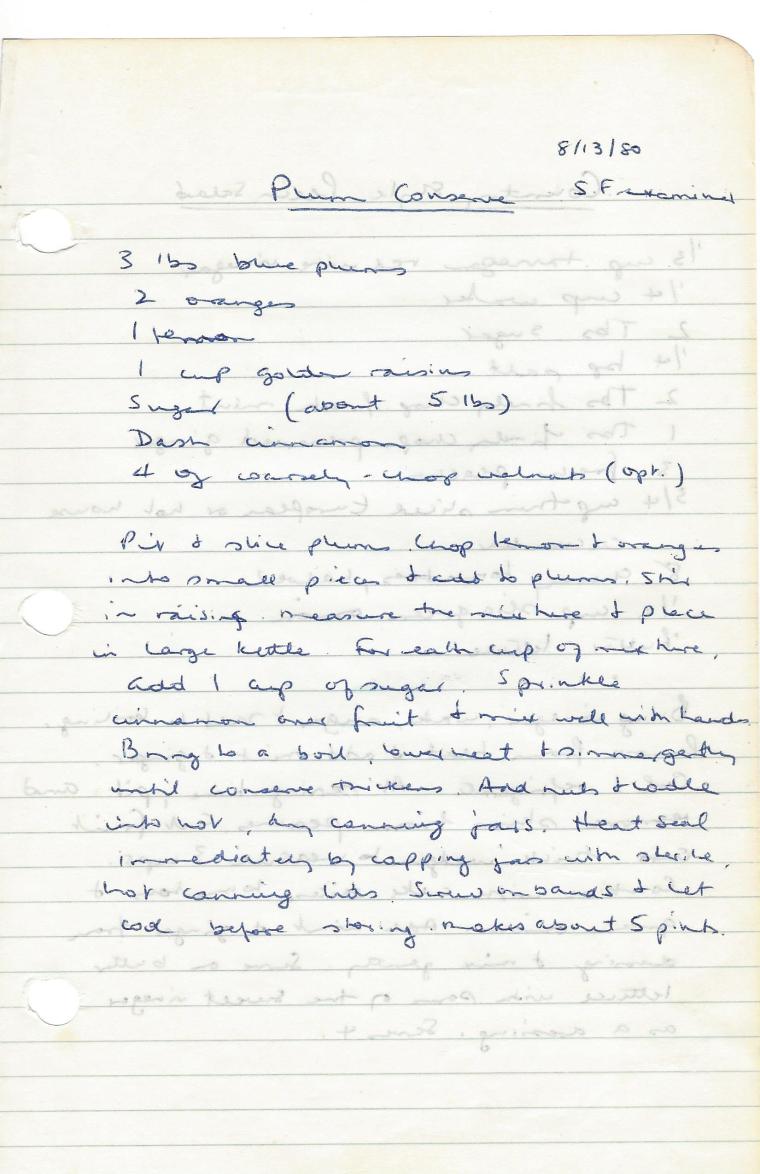 8/13/80
Plum Conserve S.F. examiner
3 lbs blue plums
2 oranges
1 lemon
1 cup golden raisins
Sugar (about 5 lbs)
Dash cinnamon
4 oz coarsely-chop walnuts (opt.)
Pit & slice plums. Chop lemon & oranges
into small pieces & add to plums. Stir
in raisins. measure the mixture & place
in large kettle. For each cup of mixture,
add 1 cup of sugar. Sprinkle
cinnamon over fruit & mix well with hands.
Bring to a boil, lower heat & simmer gently
until conserve thickens. Add nuts & ladle
into hot, dry canning jars. Heat seal
immediately by capping jars with sterile,
hot canning lids. Screw on bands & let
cool before storing. makes about 5 pints.